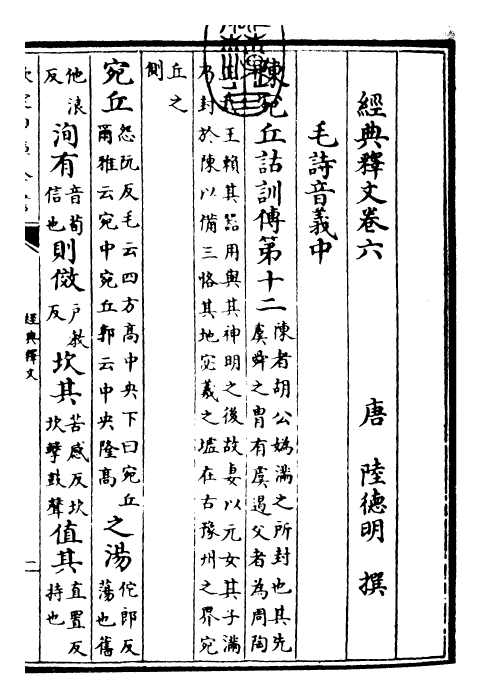 經典釋文卷六
唐 陸德明 撰
毛詩音義中
陳宛丘詁訓傳第十二
陳者胡公媯滿之所封也其先
虞舜之胄有虞遏父者為周陶
正武王賴其器用與其神明之後故妻以元女其子滿
乃封於陳以備三恪其地宓羲之墟在古豫州之界宛
丘之
側
宛丘
怨阮反毛云四方高中央下曰宛丘
爾雅云宛中宛丘郭云中央隆高
之湯
佗郎反
蕩也舊
他浪
反
洵有
音荀
信也
則傚
戶教
反
坎其
苦感反坎
坎擊鼓聲
值其
直置反
持也
經典釋文
二